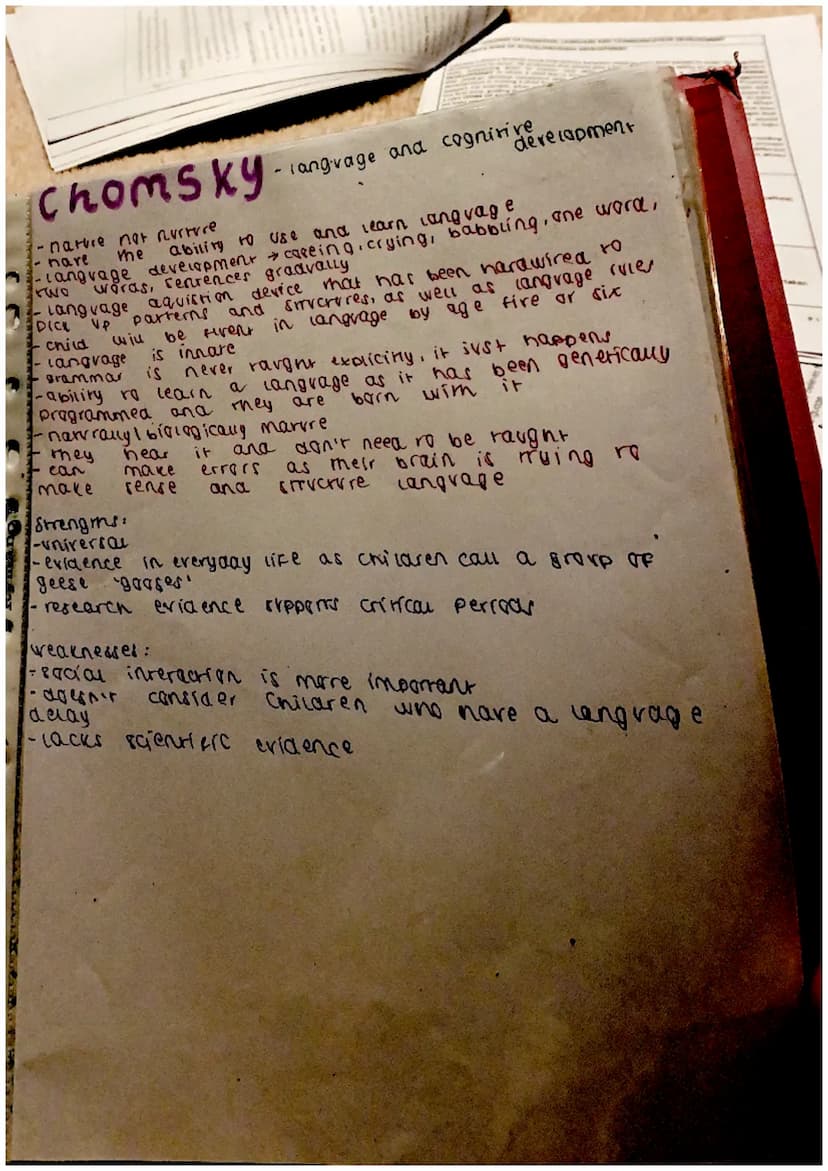 Chomsky - language and cognitive
development
- nature not nurture
- have the ability to use and learn language
- language development → cooeing, crying, babbling, one word,
two words, sentences gradually
- language aquistion device that has been hardwired to
pick up patterns and structures, as well as language rules
- child will be fluent in language by age five or six
- language is innate
- grammar is never taught explicitly, it just happens
- ability to learn a language as it has been genetically
programmed and they are born with it
- naturally/biologically mature
- they hear it and don't need to be taught
- can make errors as their brain is trying to
make sense and structure language
Strengths:
- universal
- evidence in everyday life as children call a group of
geese 'gooses'
- research evidence supports critical periods
weaknesses:
- social interaction is more important
- doesn't consider children who have a language
delay
- lacks scientific evidence